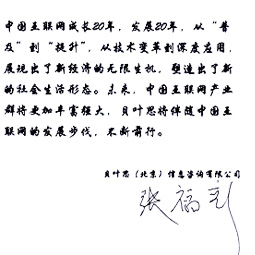 中国互联网成长20年，发展20年，从“普
及”到“提升”，从技术变革到深度应用，
展现出了新经济的无限生机，塑造出了新
的社会生活形态。未来，中国互联网产业
群将更加丰富强大，贝叶思将伴随中国互
联网的发展步伐，不断前行。
贝叶思（北京）信息咨询有限公司
张福